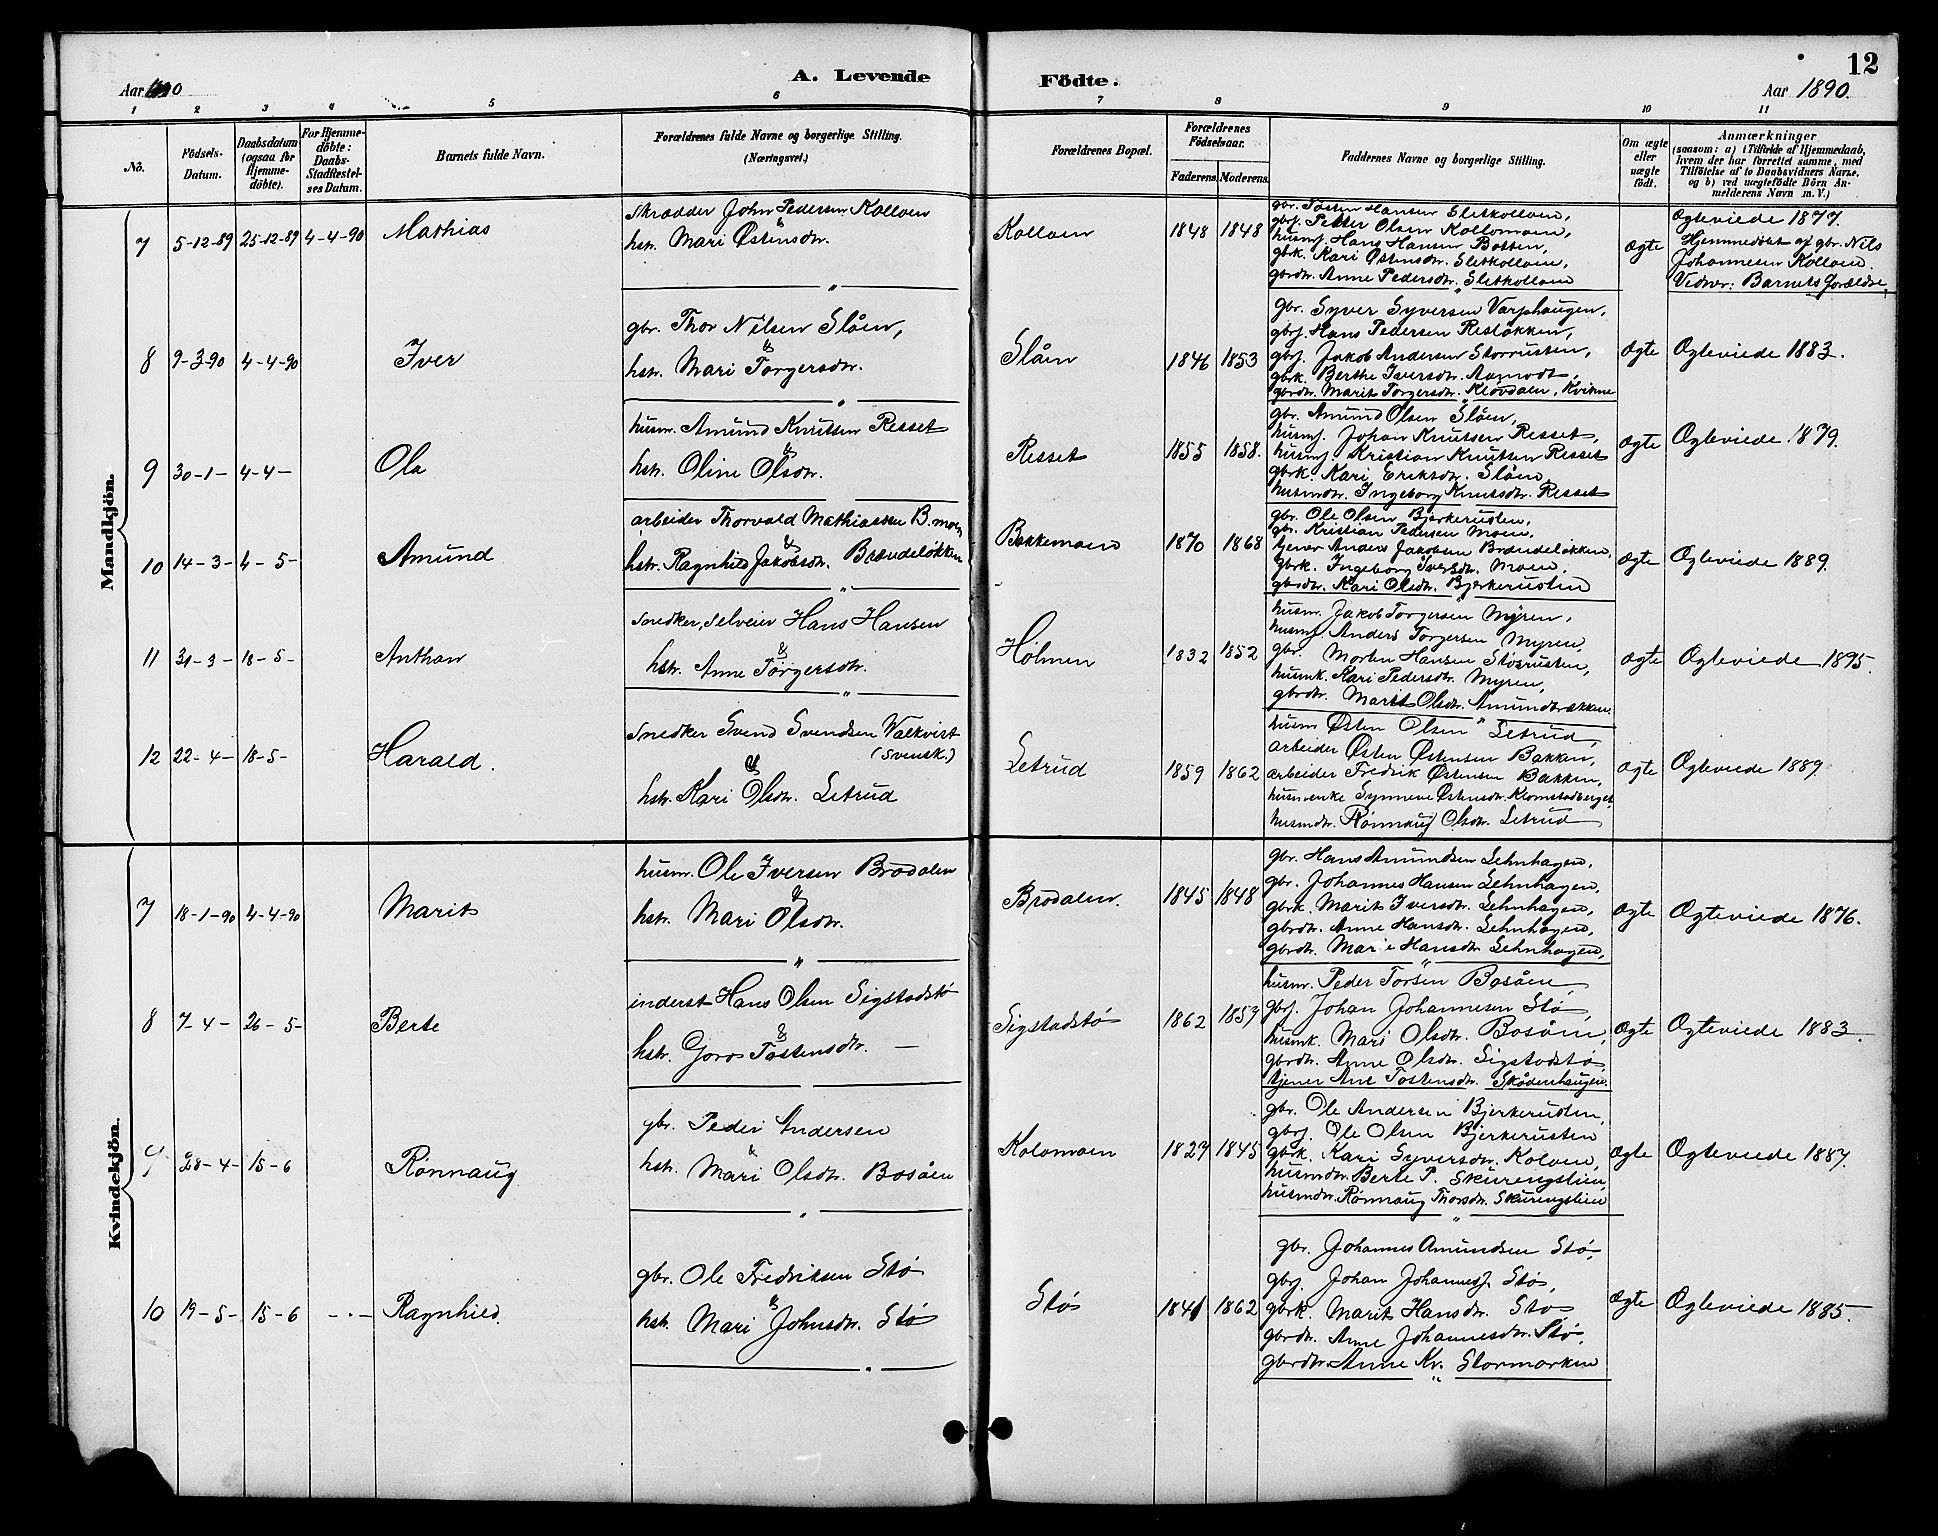 A. Levende Födte.
12
Aar 1890
Aar 1890.
1 2 3 4 5 6 7 8 9 10 11
No.
Födsels-Datum.
Daabsdatum (ogsaa for Hjemme-döbte).
For Hjemme-döbte: Daabs-Stadfæstel-ses Datum.
Barnets fulde Navn.
Forældrenes fulde Navne og borgerlige Stilling. (Næringsvei.)
Forældrenes Bopæl.
Forældrenes Födselsaar.
Faderens. Moderens.
Faddernes Navne og borgerlige Stilling.
Om ægte eller uægte födt.
Anmærkninger
(saasom: a) i Tilfælde af Hjemmedaab, hvem der har forrettet samme, med Tilföielse af to Daabsvidners Navne, og b) ved uægtefödte Börn An-melderens Navn m. V.)
Mandkjön.
7 5-12-89 25-12-89 4-4-90 Mathias
Skrædder John Pedersen Kolloen
&
hstr. Mari Østensdtr.
Kolloen 1848 1848
gbr. Tosten Hansen Sletkolloen,
gbrj. Petter Olsen Kollomoen,
husmj. Hans Hansen Botten,
gbrk. Kari Østensdtr. Sletkolloen,
gbrdtr. Anne Pedersdtr. Sletkolloen
Ægte
Ægteviede 1877.
Hjemmedøbt af gbr. Nils
Johannesen Kolloen.
Vidner: Barnets forældre.
8 9-3-90 4-4-90 Iver
gbr. Thor Nilsen Slåen,
&
hstr. Mari Torgersdtr.
Slåen 1846 1853
gbr. Syver Syversen Varphaugen,
gbrj. Hans Pedersen Resløkken,
gbrj. Jakob Andersen Storrusten,
gbrk. Berthe Iversdtr. Aamodt,
gbrdtr. Marit Torgersdtr. Kløvdalen, Kvikne
Ægte Ægteviede 1883.
9 30-1- 4-4- Ola
husm. Amund Knutsen Resset
&
hstr. Oline Olsdtr.
Resset 1855 1858.
gbr. Amund Olsen Slåen,
husmj. Johan Knutsen Resset,
husmj. Kristian Knutsen Resset
gbrk. Kari Eriksdtr. Slåen
husmdtr. Ingeborg Knutsdtr. Resset
Ægte Ægteviede 1879.
10 14-3- 4-5- Amund
arbeider Thorvald Mathiassen B.moen
&
hstr. Ragnhild Jakobsdtr. Brændeløkken
Bakkemoen 1870 1868
gbr. Ole Olsen Bjerkerusten,
gbr. Kristian Pedersen Moen,
tjener Anders Jakobsen Brændeløkken,
gbrk. Ingeborg Iversdtr. Moen.
gbrdtr. Kari Olsdtr. Bjerkerusten
Ægte Ægteviede 1889.
11 31-3- 18-5- Anthon
Snedker, selveier Hans Hansen
&
hstr. Anne Torgersdtr.
Holmen 1832 1852
husm. Jakob Torgersen Myren,
husmj. Anders Torgersen Myren,
gbr. Morten Hansen Storrusten,
husmk. Kari Pedersdtr. Myren,
gbrdtr. Marit Olsdtr. Amundbrækken.
Ægte Ægteviede 1895.
12 22-4- 18-5- Harald.
Snedker Svend Svendsen Valkvist
(Svensk.)
&
hstr. Kari Olsdtr. Letrud
Letrud 1859 1862
husm Østen Olsen Letrud,
arbeider Østen Østensen Bakken,
arbeider Fredrik Østensen Bakken,
husm.enke Synneve Østensdtr. Klomstadberget
husmdtr. Rønnaug Olsdtr. Letrud
Ægte Ægteviede 1889
Kvindekjön.
7 18-1-90 4-4-90 Marit
husm. Ole Iversen Brodalen
&
hstr. Mari Olsdtr.
Brodalen. 1845 1848
gbr. Hans Amundsen Lehnhagen,
gbr. Johannes Hansen Lehnhagen,
gbrk. Marit Iversdtr. Lehnhagen,
gbrdtr. Anne Hansdtr. Lehnhagen,
gbrdtr. Mari Hansdtr Lehnhagen,
Ægte Ægteviede 1876.
8 7-4- 26-5- Berte
inderst Hans Olsen Sigstadstø
&
hstr. Goro Tostensdtr. —
Sigstadstø 1862 1857
husm. Peder Torsen Bosåen
gbrj. Johan Johannesen Stø
husmk. Mari Olsdtr. Bosåen,
gbrdtr. Anne Olsdtr. Sigstadstø
tjener Ane Tostensdtr. Skådenhaugen.
Ægte Ægteviede 1883.
9 28-4- 15-6 Rønnaug
gbr. Peder Andersen
&
hstr. Mari Olsdtr. Bosåen
Kolomoen 1827 1845
gbr. Ole Andersen Bjerkerusten,
gbrj. Ole Olsen Bjerkerusten
gbrk. Kari Syversdtr. Koloen,
husmdtr. Berte P. Skurengslien,
husmdtr. Rønnaug Thorsdtr. Skurengslien
Ægte Ægteviede 1887.
10 19-5- 15-6 -·- Ragnhild.
gbr. Ole Fredriksen Stø
&
hstr. Mari Johnsdtr. Stø
Stø 1841 1862
gbr. Johannes Amundsen Stø,
gbrj. Johan Johannesj. Stø,
gbrk. Marit Hansdtr. Stø
gbrdtr. Anne Johannesdtr. Stø,
gbrdtr. Anne Kr. Stormorken
Ægte Ægteviede 1885.